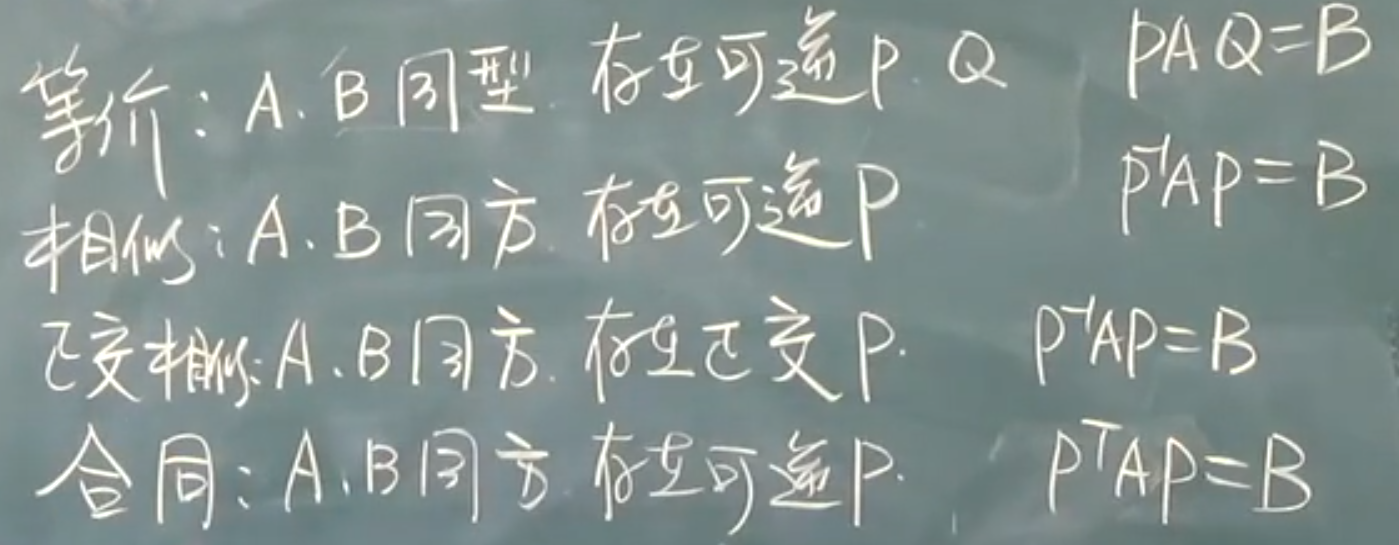 等价:A.B同型 存在可逆P.Q PAQ=B
相似:A.B同方.存在可逆P P⁻¹AP=B
正交相似:A.B同方.存在正交P. P⁻¹AP=B
合同:A.B同方 存在可逆P. PᵀAP=B